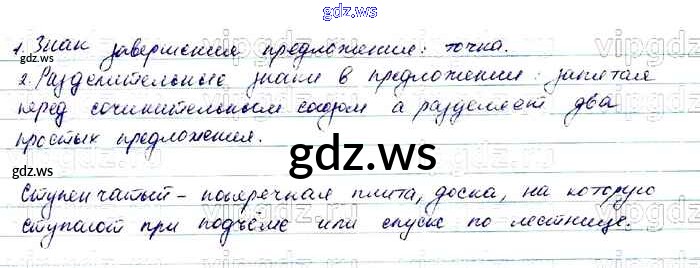 gdz.ws
1. Знак завершения предложения: точка.
2. Разделительные знаки в предложении: запятая
перед сочинительным союзом а разделяет два
простых предложения.
gdz.ws
Ступенчатый – поперечная плита, доска, на которую
ступают при подъёме или спуске по лестнице.
gdz.ws